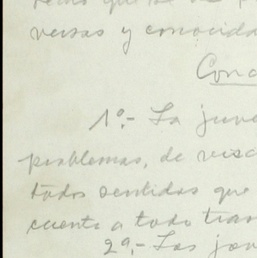 versas y conocida
Conc
1º.- La juve
problemas, de
todos sentidos que
cuenta a todo
2ª.- Las jov